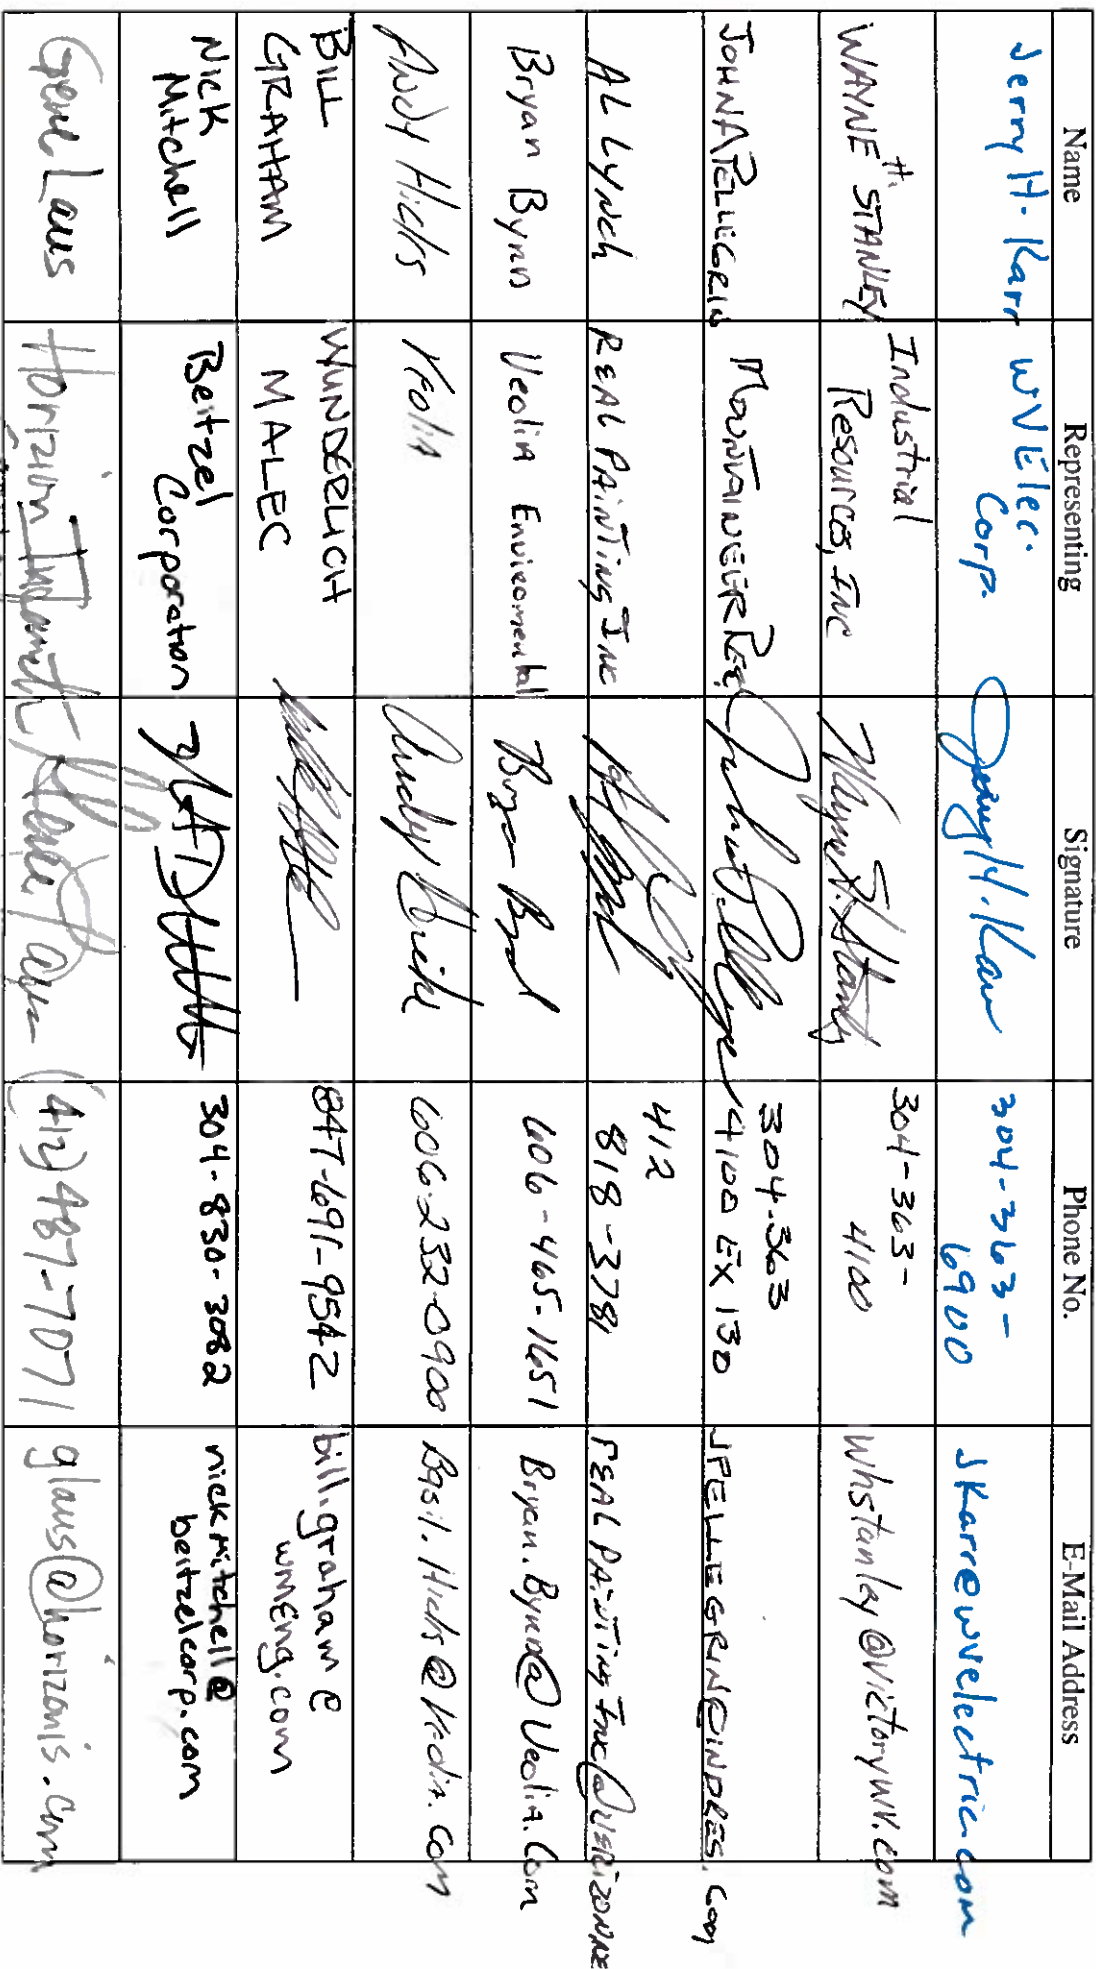 Name Representing Signature Phone No. E-Mail Address
Jerry H. Karr WVElec. Corp. Jerry H. Karr 304-363-6900 JKarr@wvelectric.com
WAYNE H. STANLEY Industrial Resources, Inc Wayne H. Stanley 304-363-4100 whstanley@victorywv.com
JOHN A PELLEGRIN MOUNTAINEER RES. 304-363 4100 EX 130 JPELLEGRIN@INDRES.COM
AL LYNCH REAL PAINTING INC 412 818-3781 REALPAINTINGINC@VERIZON.NE
Bryan Bynd Veolia Enviromental Bryan Bynd 606-465-1651 Bryan.Bynd@Veolia.Com
Andy Hicks Veolia Andy Hicks 606-232-0900 Basil.Hicks@Veolia.com
BILL GRAHAM WUNDERLICH MALEC 847-691-9542 bill.graham@wmeng.com
Nick Mitchell Beitzel Corporation 304-830-3082 nickmitchell@beitzelcorp.com
Gene Laus Horizion (412) 487-7071 glaus@horizonis.com